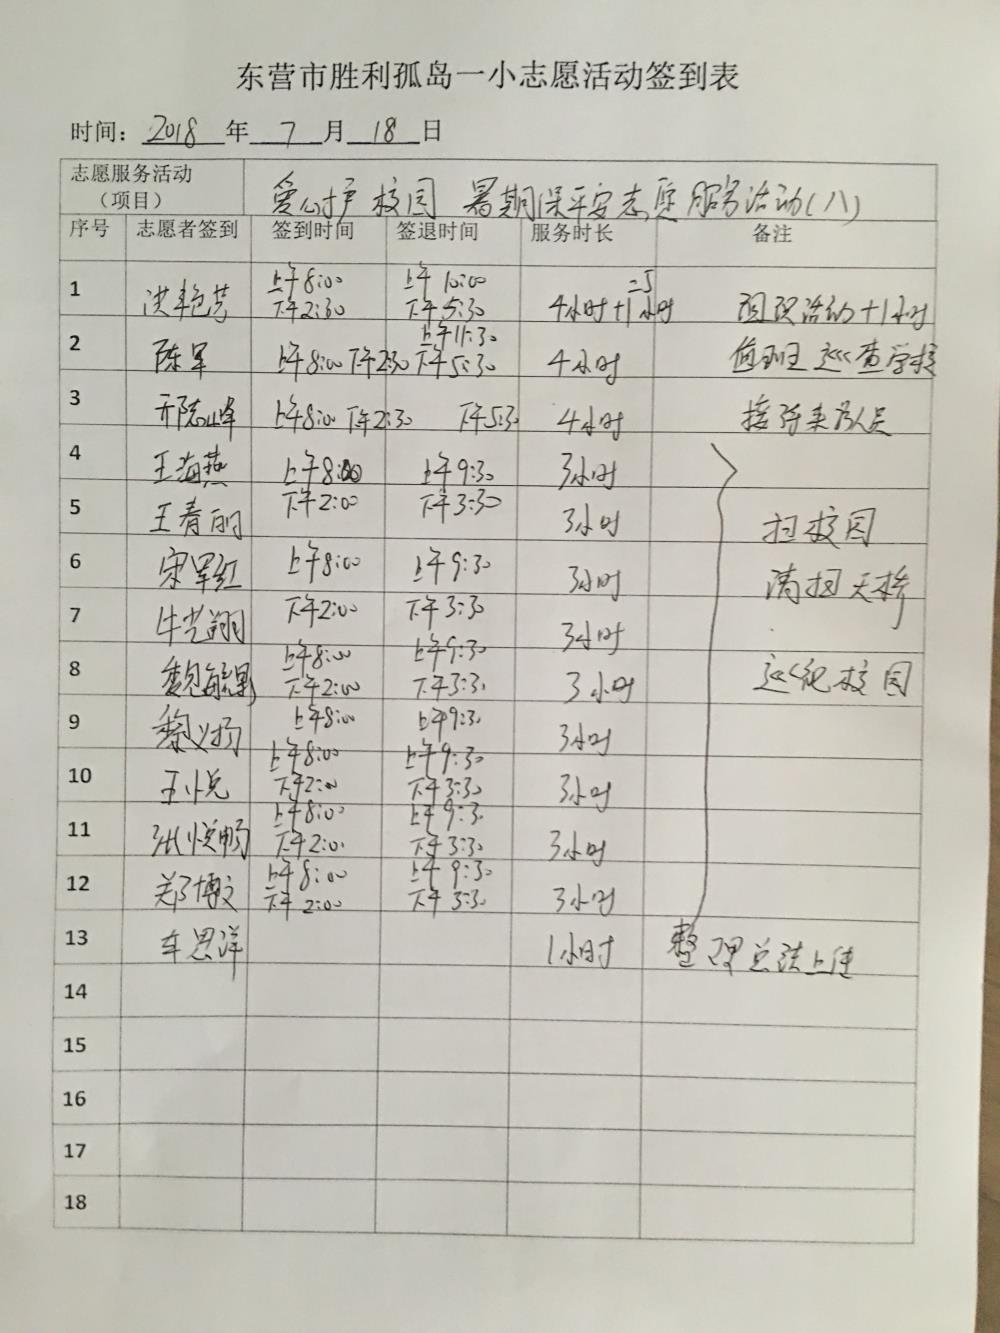 东营市胜利孤岛一小志愿活动签到表
时间：2018年7月18日
志愿服务活动（项目） 爱心护校园 暑期保平安志愿服务活动(八)
序号 志愿者签到 签到时间 签退时间 服务时长 备注
1 洪艳芳 上午8:00 下午2:30 上午10:00 下午5:30 4小时+1小时 =5 组织活动+1小时
2 陈军 上午8:00 下午2:30 上午11:30 下午5:30 4小时 值班 巡查学校
3 上午8:00 下午2:30 下午5:30 4小时 接待来访人员
4 王海燕 上午8:00 上午9:30 3小时
5 王春丽 下午2:00 下午3:30 3小时 扫校园
6 宋军红 上午8:00 上午9:30 3小时 清扫天桥
7 牛艺翔 下午2:00 下午3:30 3小时
8 上午8:00 下午2:00 上午9:30 下午3:30 3小时 巡视校园
9 上午8:00 上午9:30 3小时
10 王悦 上午8:00 下午2:00 上午9:30 下午3:30 3小时
11 张悦畅 上午8:00 下午2:00 上午9:30 下午3:30 3小时
12 郑博文 上午8:00 下午2:00 上午9:30 下午3:30 3小时
13 车思洋 1小时 整理总结上传
14
15
16
17
18